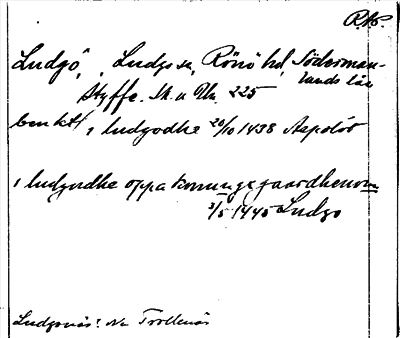 RAP.
Ludgo, Ludgo sn, Rönö hd, Söderman-
lands län
Styffe. Sk. u Un. 225
benkt i ludgodhe 20/10 1438 Aspolöt
i ludgudhe oppa konungxgaardhenom
3/5 1445 Ludgo
Ludgonäs: Nu Trollenäs